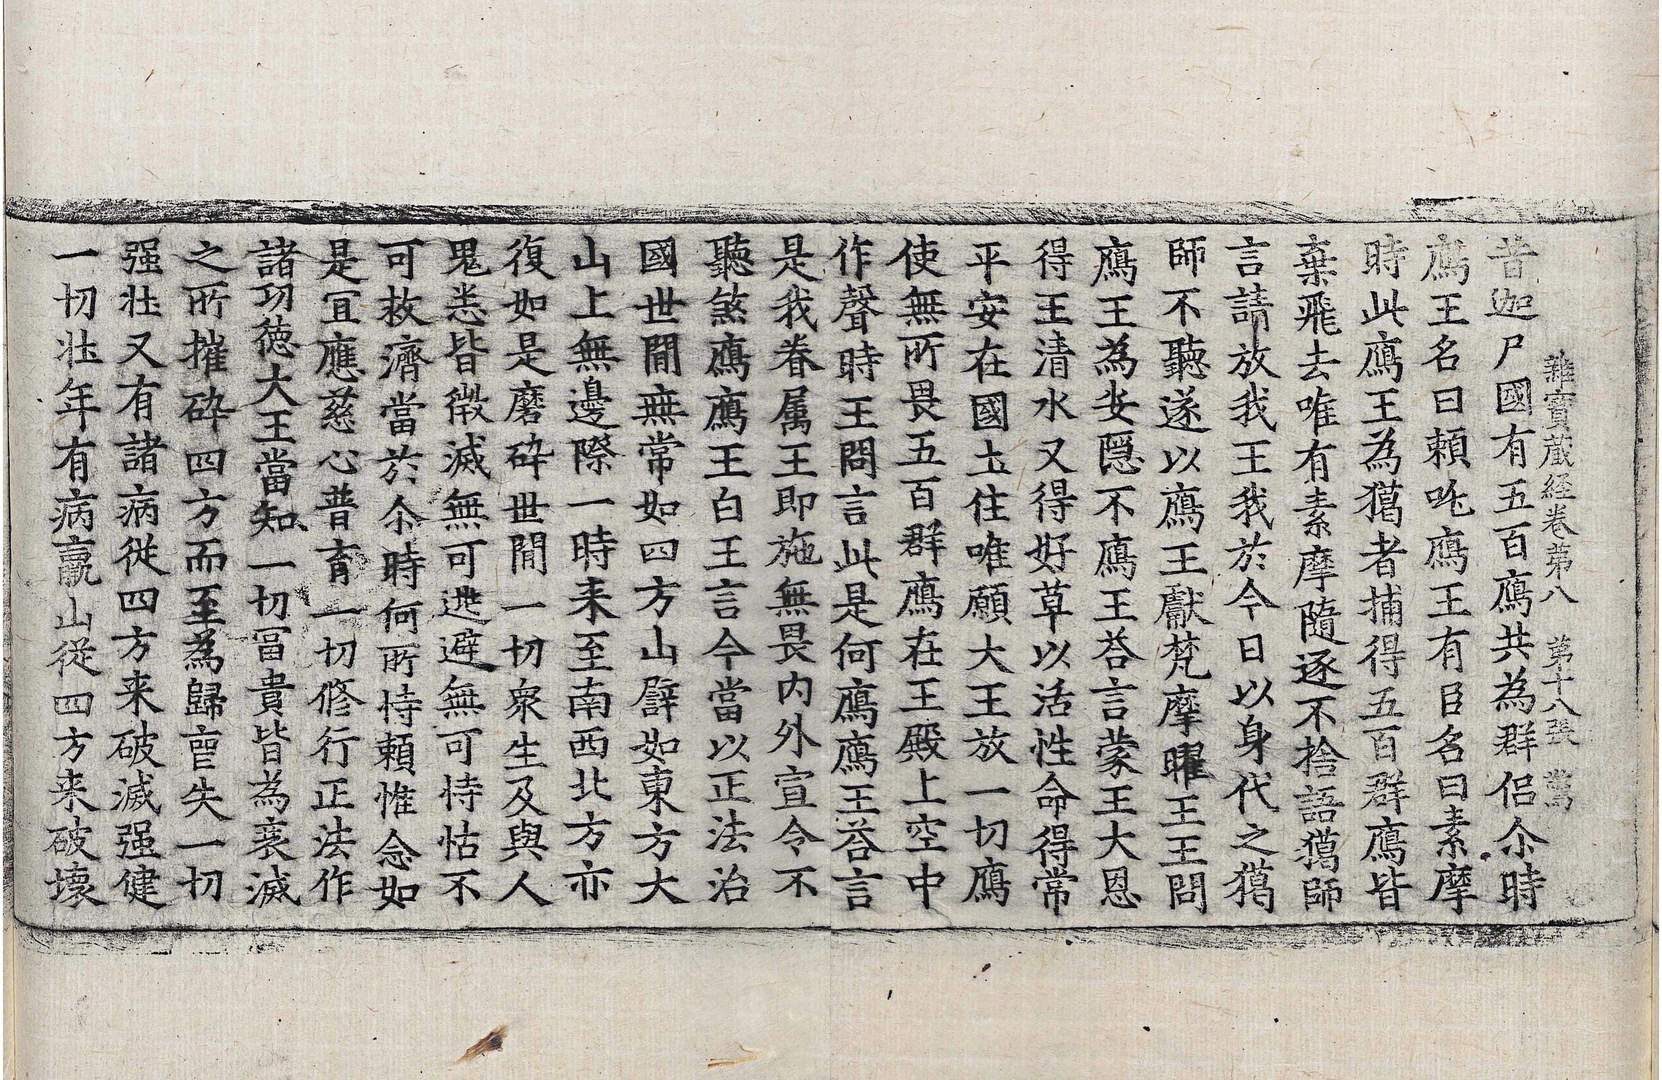 雜寶蔵経卷第八 第十八張 驚
昔迦尸國有五百鴈共為群侣尒時
鴈王名曰頼吒鴈王有臣名曰素摩
時此鴈王為獦者捕得五百群鴈皆
棄飛去唯有素摩隨逐不捨語獦師
言請放我王我於今日以身代之獦
師不聽遂以鴈王獻梵摩曜王王問
鴈王為安隱不鴈王荅言蒙王大恩
得王清水又得好草以活性命得常
平安在國土住唯願大王放一切鴈
使無所畏五百群鴈在王殿上空中
作聲時王問言此是何鴈鴈王荅言
是我眷属王即施無畏内外宣令不
聽煞鴈鴈王白王言今當以正法治
國世間無常如四方山譬如東方大
山上無邊際一時来至南西北方亦
復如是磨碎世間一切衆生及與人
鬼悉皆微滅無可逃避無可恃怙不
可救濟當於尒時何所恃頼惟念如
是冝應慈心普育一切修行正法作
諸功德大王當知一切冨貴皆為衰滅
之所摧碎四方而至為歸㑹失一切
强壮又有諸病従四方来破滅强健
一切壮年有病羸山従四方来破壞